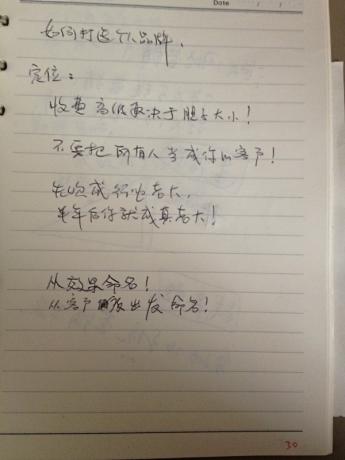 Date / /
如何打造个人品牌.
定位:
收费高低取决于胆子大小!
不要把所有人当成你的客户!
先吹成行业老大,
半年后你就成真老大!
从效果命名!
从客户出发命名!
30